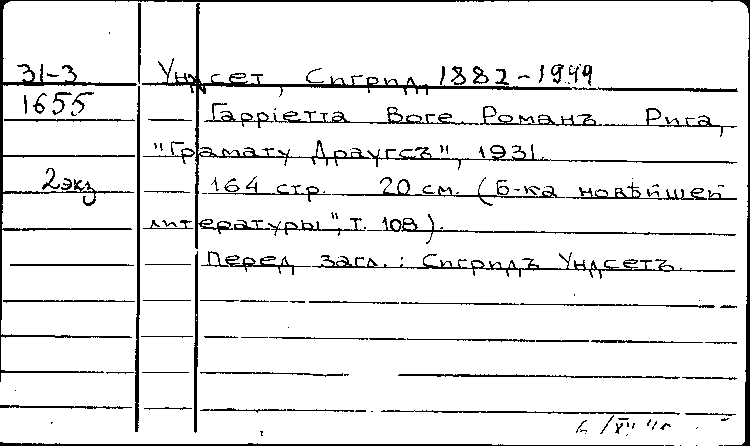 31-3 Ундсет, Сигрид, 1882-1949
1655 Гарріетта Воге. Романъ. Рига,
"Грамату Драугсъ", 1931.
2 экз 164 стр. 20 см. (Б-ка новѣйшей
литературы", т. 108).
Перед загл.: Сигридъ Ундсетъ.